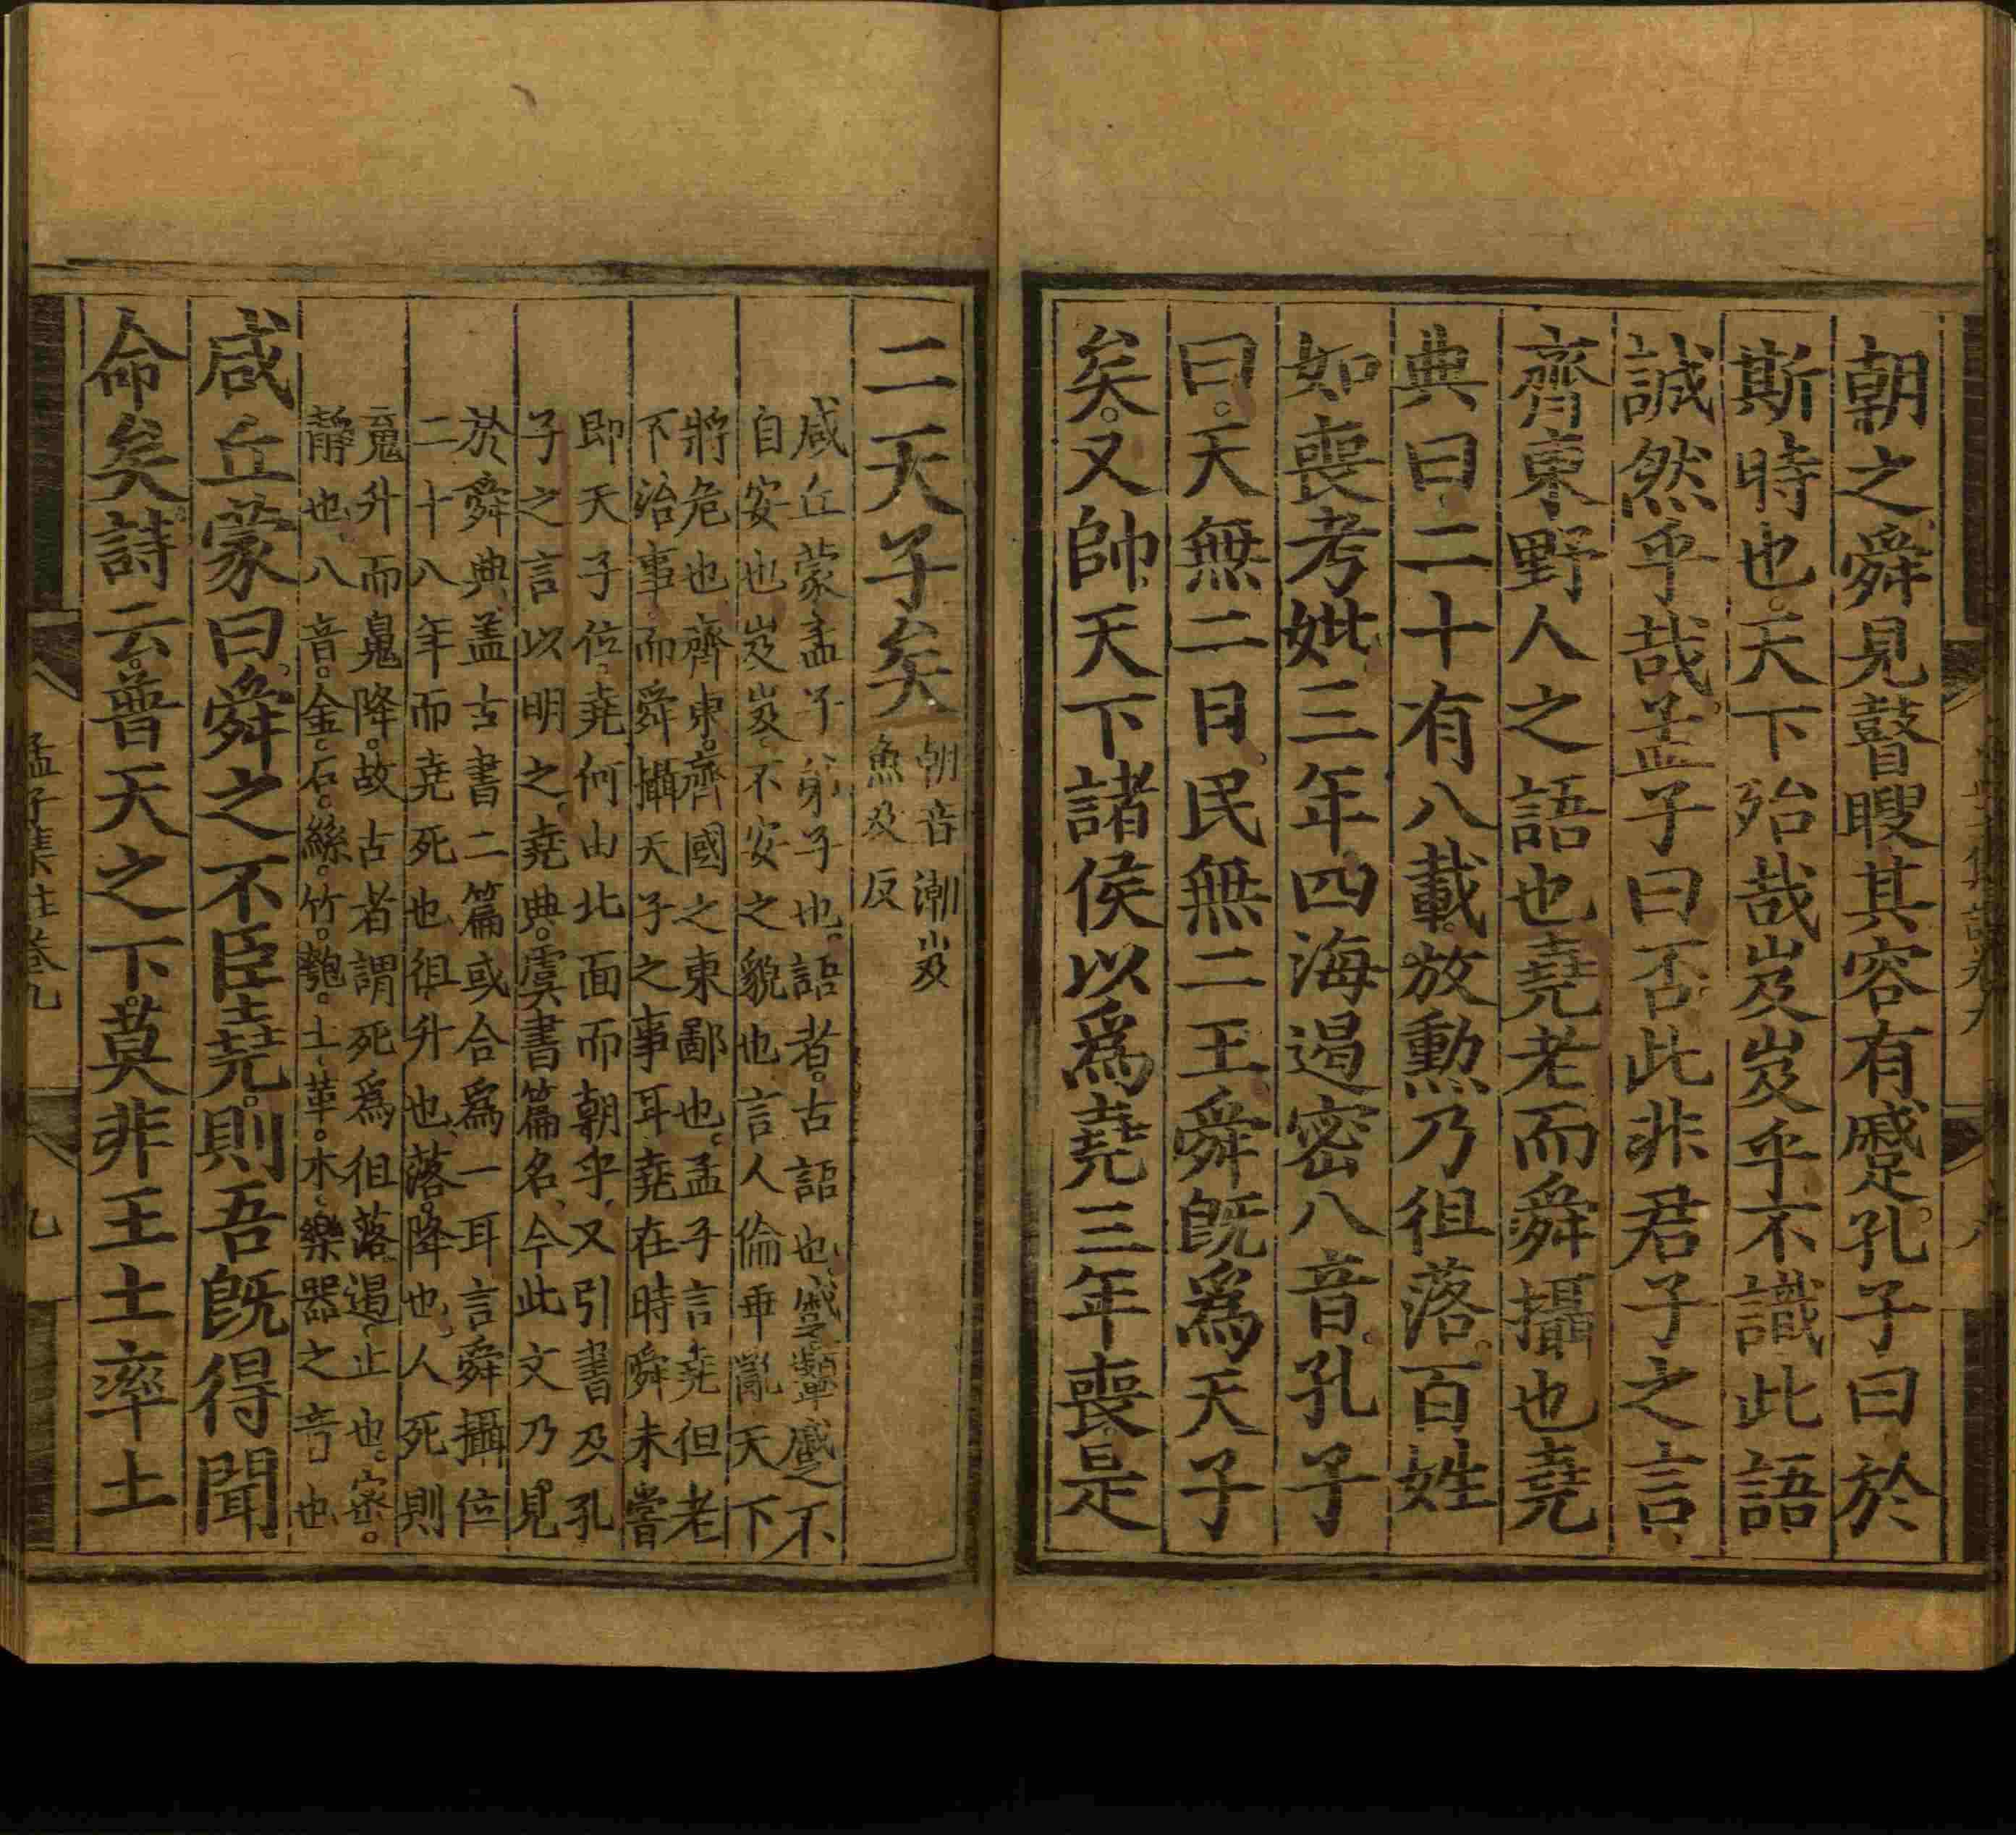 朝之舜見瞽瞍其容有蹙孔子曰於
斯時也天下殆哉岌岌乎不識此語
誠然乎哉孟子曰否此非君子之言
齊東野人之語也堯老而舜攝也堯
典曰二十有八載放勳乃徂落百姓
如喪考妣三年四海遏密八音孔子
曰天無二日民無二王舜旣爲天子
矣又帥天下諸侯以爲堯三年喪是
二天子矣
朝音潮岌
魚及反
咸丘蒙孟子弟子也語者古語也蹙顰蹙不
自安也岌岌不安之貌也言人倫乖亂天下
將危也齊東齊國之東鄙也孟子言堯但老
不治事而舜攝天子之事耳堯在時舜未嘗
即天子位堯何由北面而朝乎又引書及孔
子之言以明之堯典虞書篇名今此文乃見
於舜典盖古書二篇或合爲一耳言舜攝位
二十八年而堯死也徂升也落降也人死則
䰟升而鬼降故古者謂死爲徂落遏止也密
靜也八音金石絲竹匏土革木樂器之音也
咸丘蒙曰舜之不臣堯則吾旣得聞
命矣詩云普天之下莫非王土率土
孟子集註卷九
九